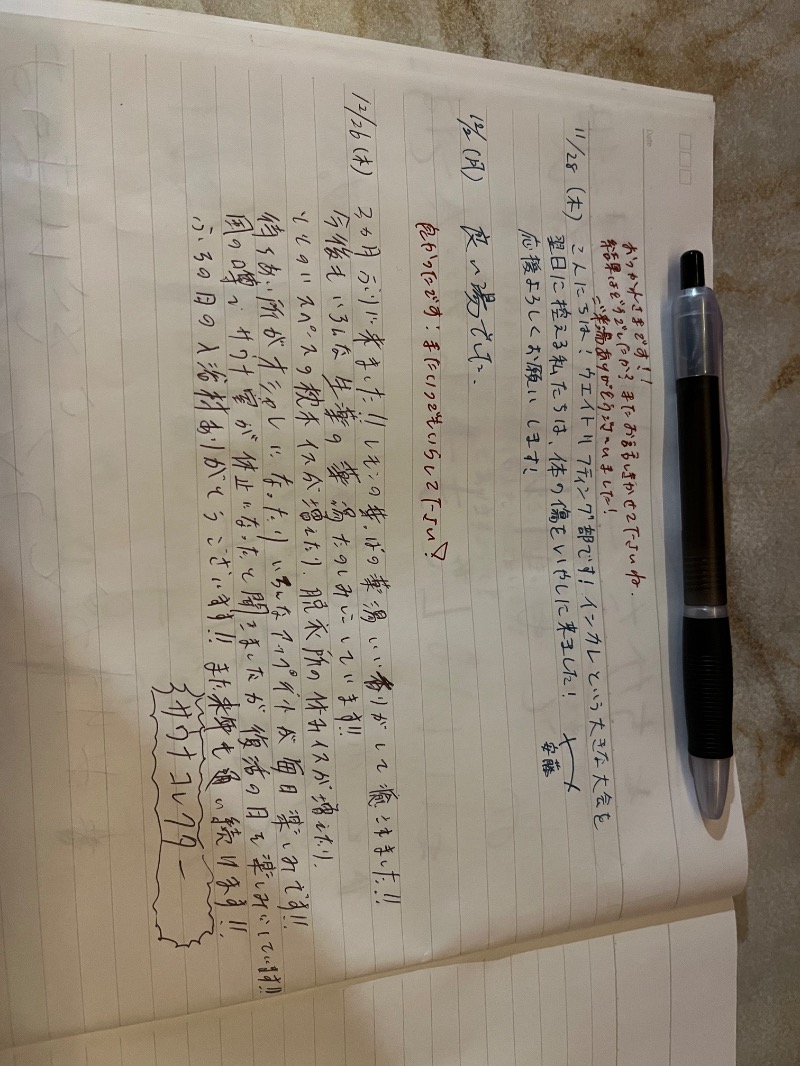 おつかれさまです！！
結果はどうでしたか？またお話もきかせて下さいね.
ご来湯ありがとうございました！
11/28 (木) こんにちは！ウエイトリフティング部です！インカレという大きな大会を
翌日に控える私たちは、体の傷をいやしに来ました！
応援よろしくお願いします！
安藤
12/2 (月) 良い湯でした.
良かったです！またいつでもいらして下さい♡
12/26 (木) 3ヵ月ぶりに来ました!! レモンの葉っぱの薬湯いい香りがして癒されました!!
今後もいろんな生薬の薬湯たのしみにしています!!
ととのいスペースの枕木イスが増えたり、脱衣所の休みイスが増えたり、
待ちあい所がオシャレになったりいろんなアップデートが毎日楽しみです!!
風の噂でサウナ室が休止になったと聞きましたが復活の日を楽しみにしています!!
ふろの日の入浴料ありがとうございます!! また来年も通い続けます!!
サウナコレクター